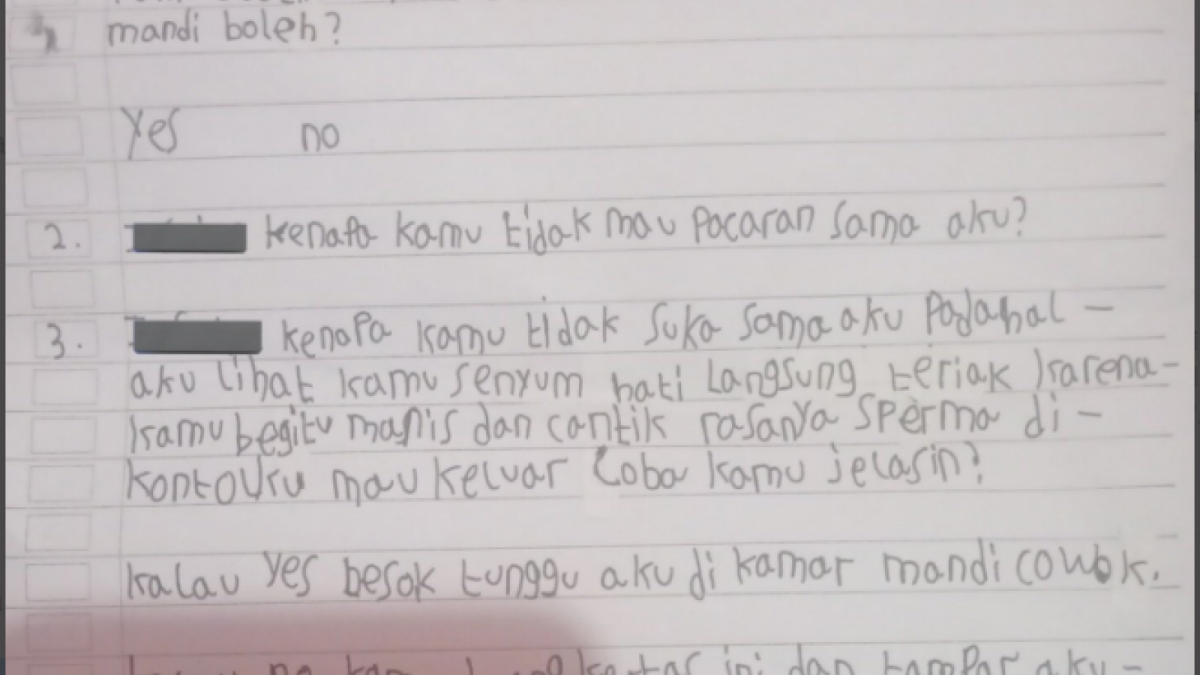 mandi boleh?
Yes no
2. kenapa kamu tidak mau pacaran sama aku?
3. kenapa kamu tidak suka sama aku Padahal -
aku lihat kamu senyum hati langsung teriak karena -
kamu begitu manis dan cantik rasanya sperma di -
kontolku mau keluar Coba kamu jelasin?
kalau yes besok tunggu aku di kamar mandi cowok.
ini dan tampar aku -